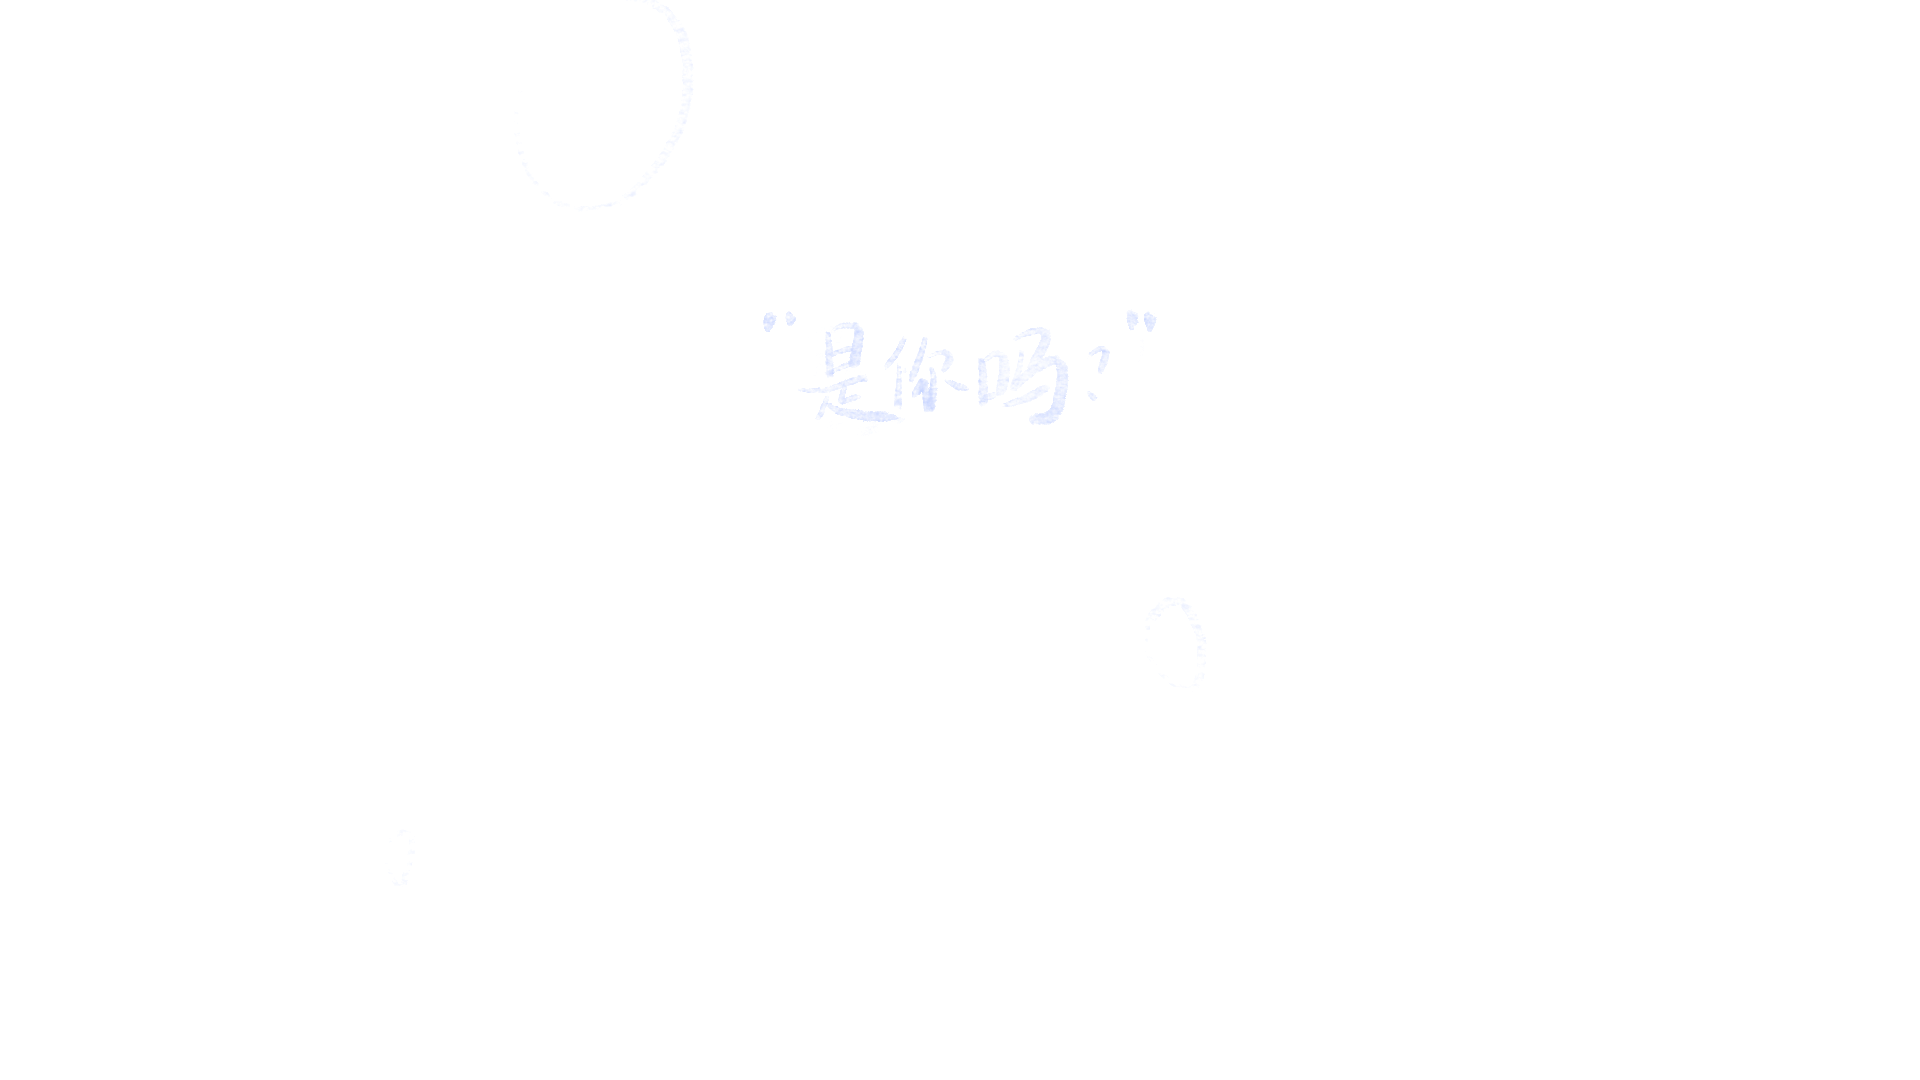 "是你吗？"